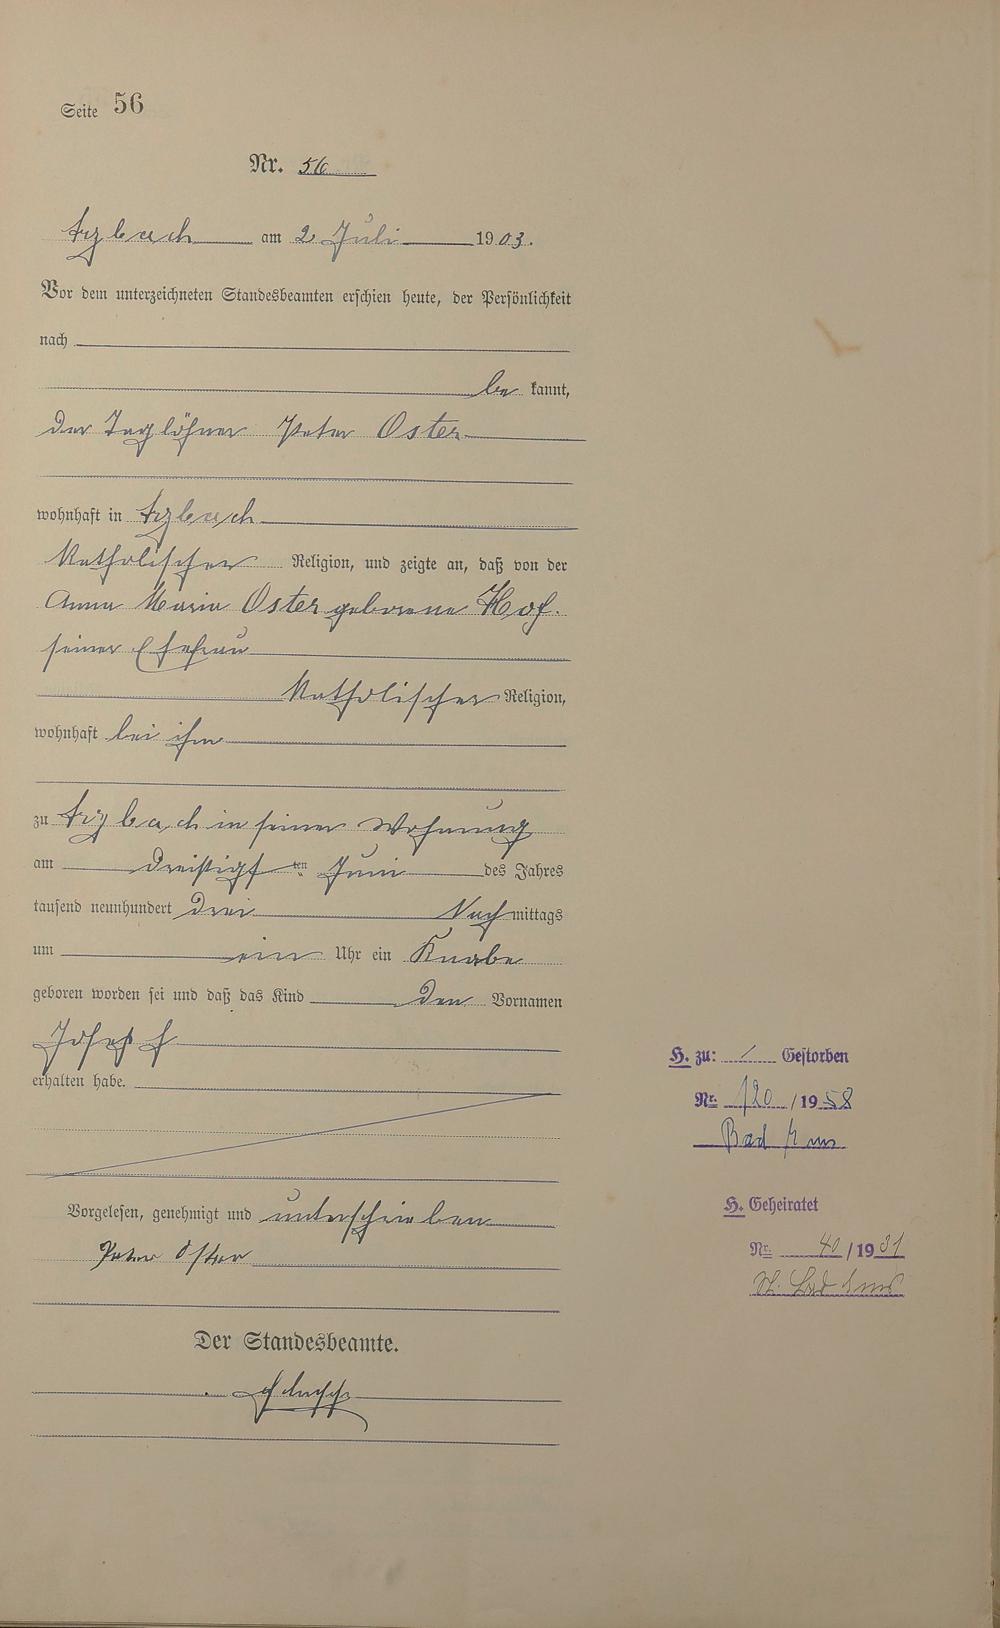 Seite 56
Nr. 56
Arzbach am 2 Juli 1903.
Vor dem unterzeichneten Standesbeamten erschien heute, der Persönlichkeit
nach
be kannt,
der Taglöhner Peter Oster
wohnhaft in Arzbach
katholischer Religion, und zeigte an, daß von der
Anna Maria Oster geborene Hof.
seiner Ehefrau
katholischer Religion,
wohnhaft bei ihm
zu Arzbach in seiner Wohnung
am dreißigsten Juni des Jahres
tausend neunhundert drei Nachmittags
um ein Uhr ein Knabe
geboren worden sei und daß das Kind den Vornamen
Joseph
erhalten habe.
Vorgelesen, genehmigt und unterschrieben
Peter Oster
Der Standesbeamte.
H. zu: / Gestorben
Nr. 120/1958
Bad Ems
H. Geheiratet
Nr. 40/1931
St. Bad Ems